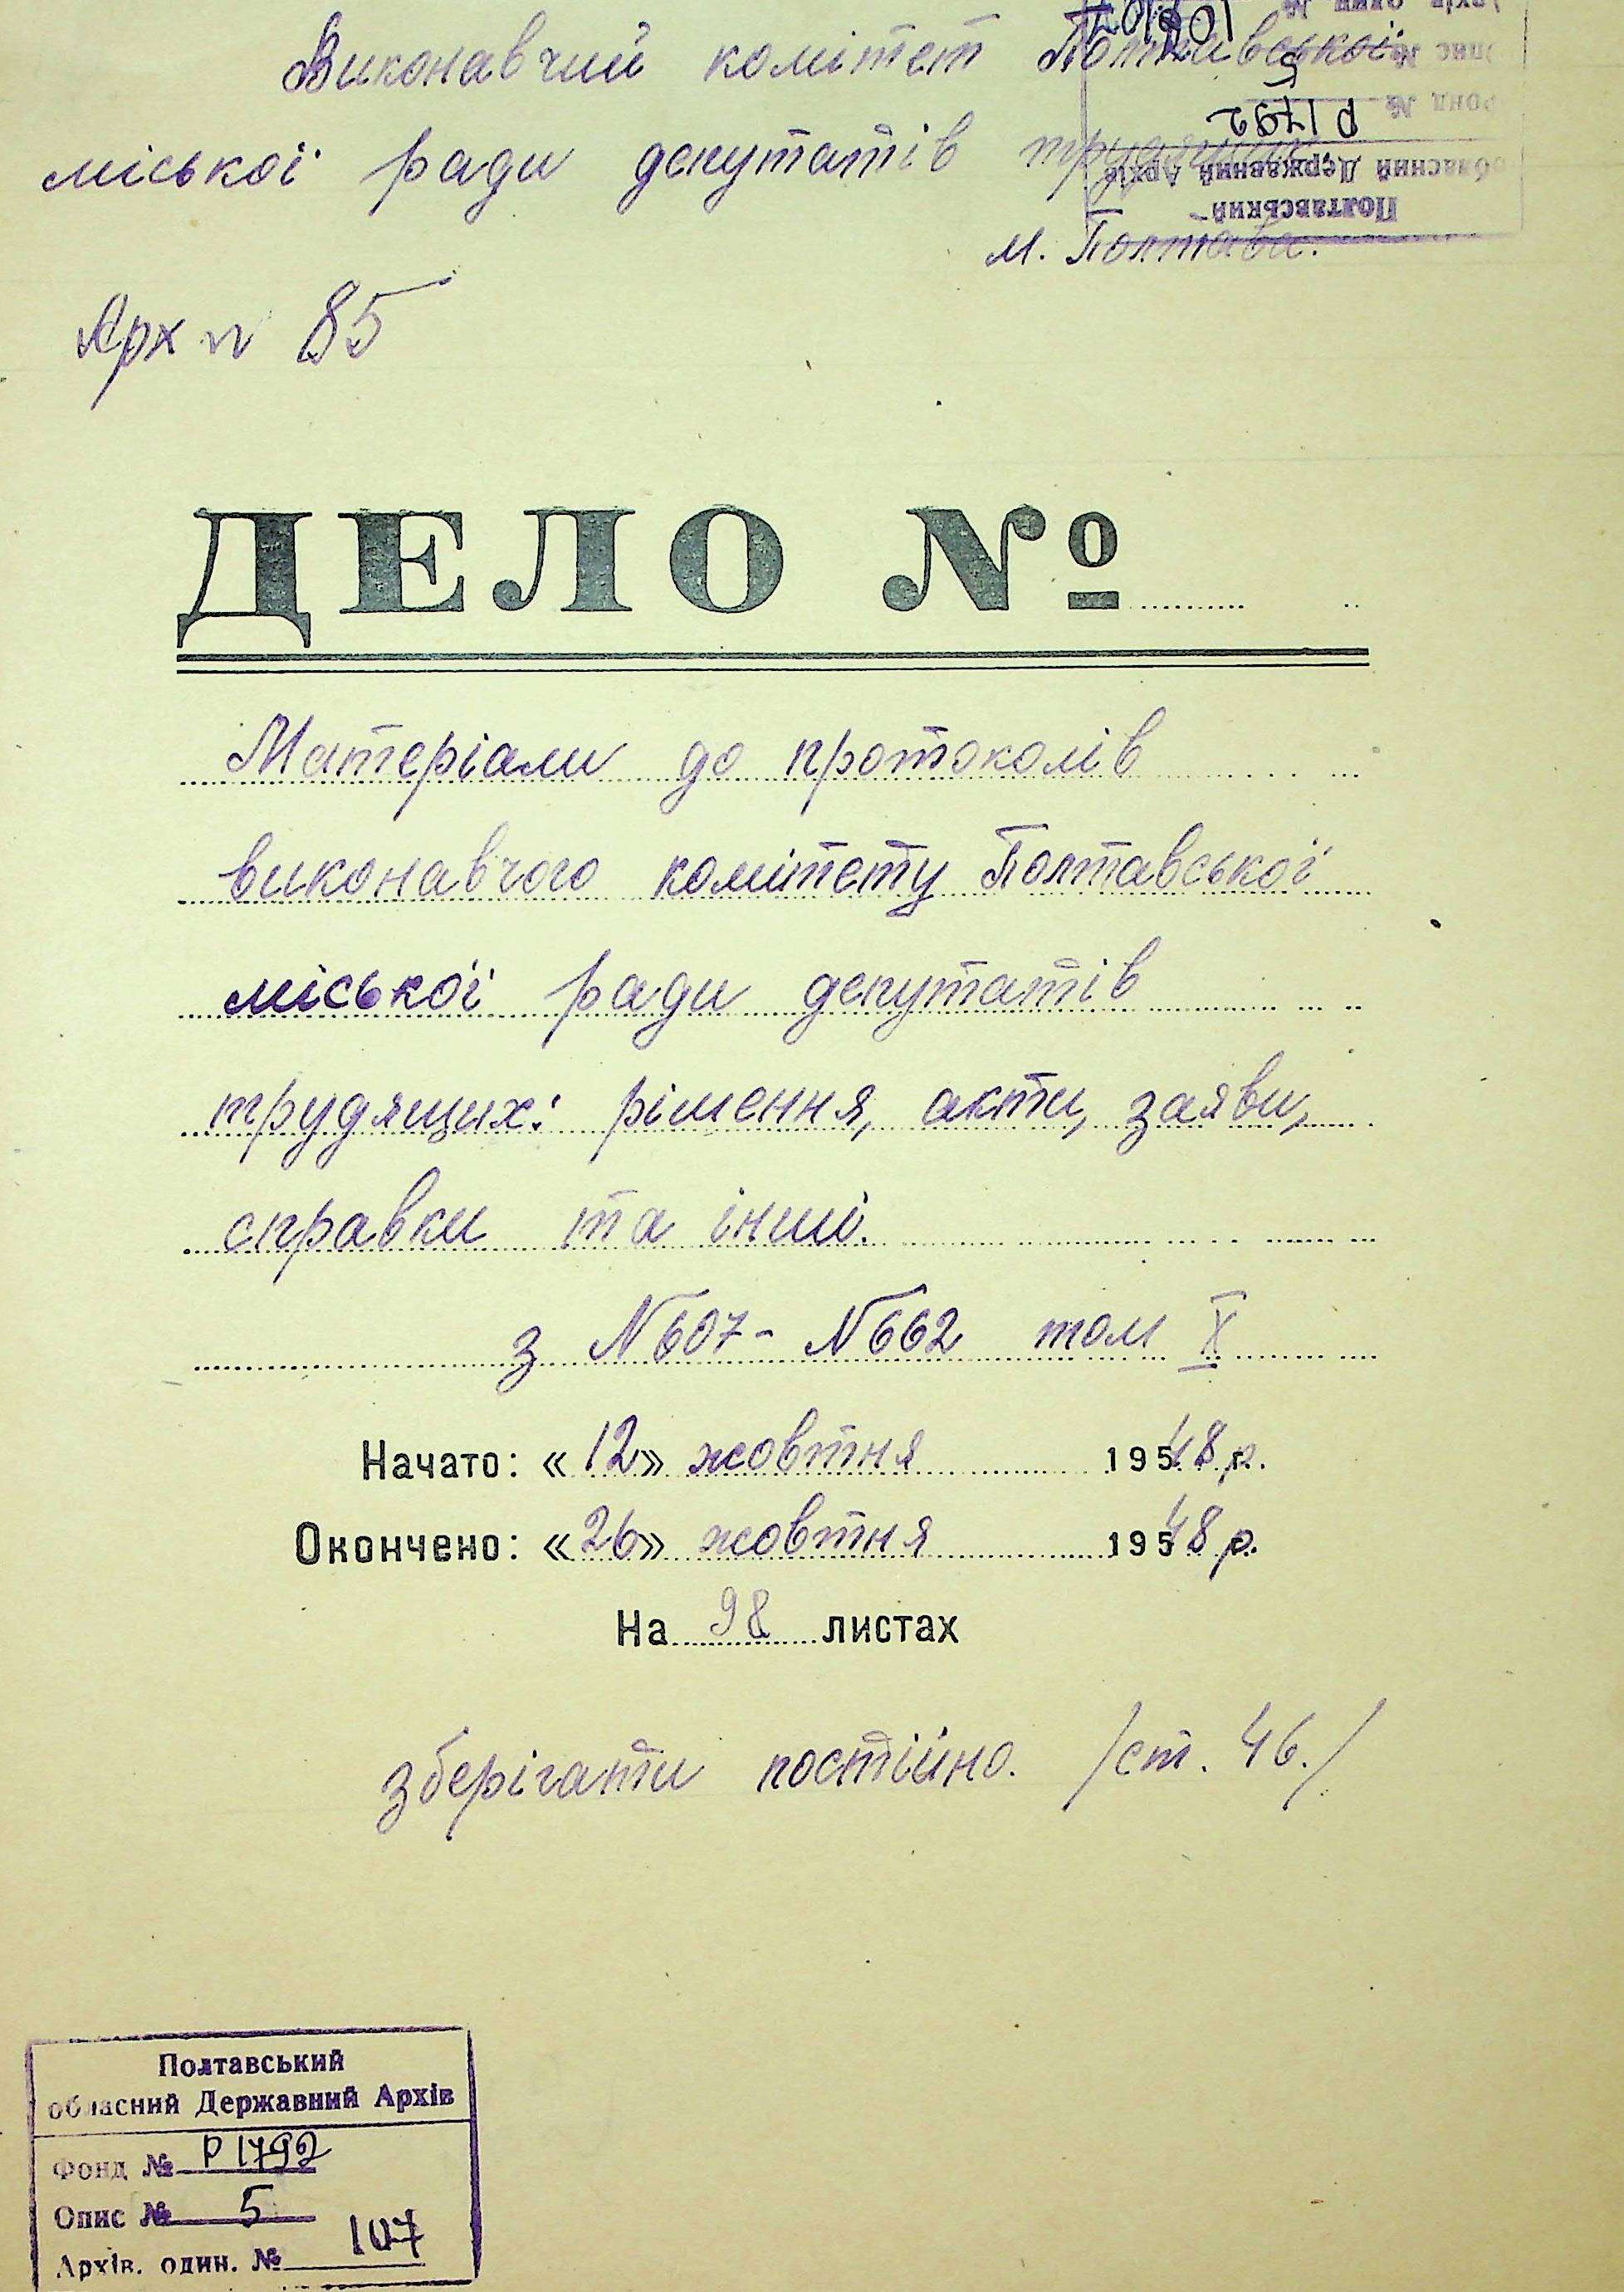 Виконавчий комітет Полтавської
міської ради депутатів трудящих
м. Полтава.
Полтавський
обласний Державний Архів
Фонд № Р 1792
Опис № 5
Архів. один. № 107
Арх № 85
ДЕЛО №
Матеріали до протоколів
виконавчого комітету Полтавської
міської ради депутатів
трудящих: рішення, акти, заяви,
справки та інші.
з №607- №662 том X
Начато: «12» жовтня 1948 р.
Окончено: «26» жовтня 1948 р.
На 98 листах
зберігати постійно. /ст. 46./
Полтавський
обласний Державний Архів
Фонд № Р 1792
Опис № 5
Архів. один. № 107